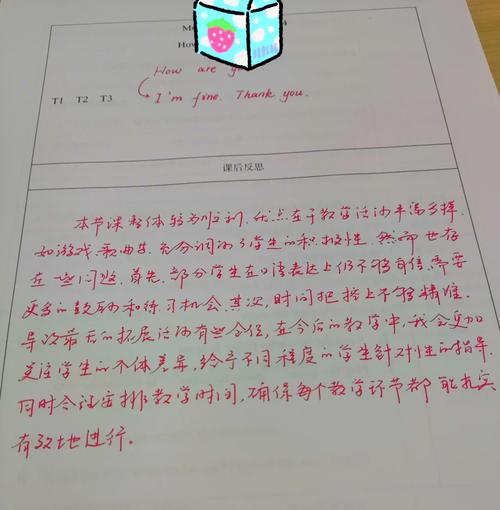 4
How are
I'm fine. Thank you.
T1 T2 T3
课后反思
本节课整体较为顺利，优点在于教学活动丰富多样，
如游戏、歌曲等，充分调动了学生的积极性。然而也存
在一些问题。首先，部分学生在口语表达上仍不够自信，需要
更多的鼓励和练习机会。其次，时间把控上不够精准，
导致最后的拓展活动有些仓促，在今后的教学中，我会更加
关注学生的个体差异，给予不同程度的学生针对性的指导，
同时合理安排教学时间，确保每个教学环节都能扎实
有效地进行。